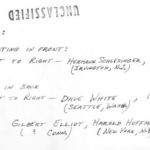 UNCLASSIFIED
:
TING IN FRONT:
T TO RIGHT - HERMANN SCHLESINGER,
(IRVINGTON, N.J.)
IN BACK
TO RIGHT - DAVE WHITE,
(SEATTLE, WASH.)
GILBERT ELLIOT, HAROLD HOFFM
(? CONN.) (NEW YORK, N.Y